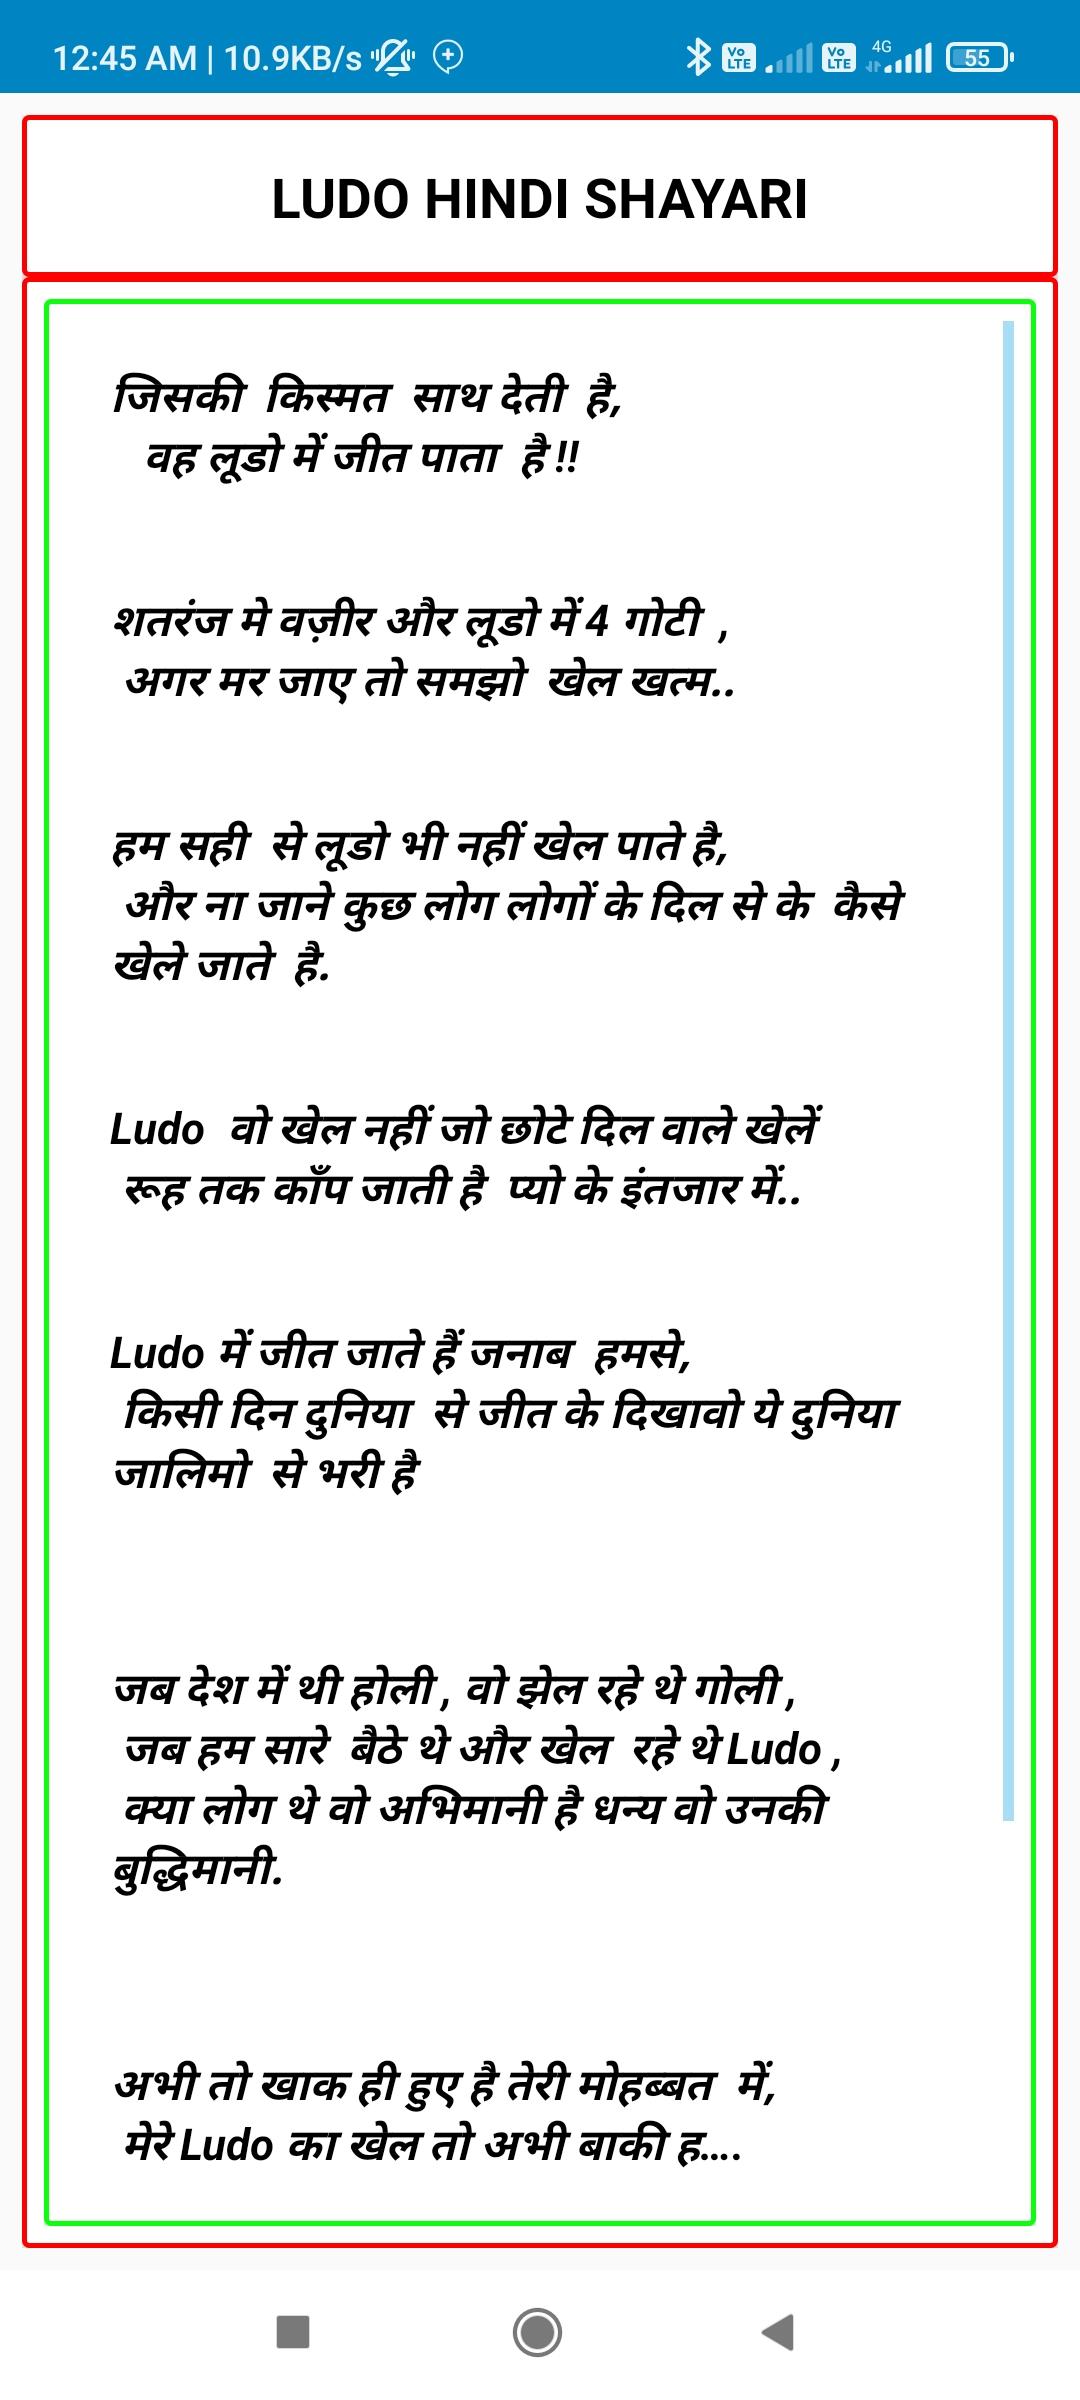 12:45 AM | 10.9KB/s
Vo LTE Vo LTE 4G 55
LUDO HINDI SHAYARI
जिसकी किस्मत साथ देती है,
वह लूडो में जीत पाता है !!
शतरंज मे वज़ीर और लूडो में 4 गोटी ,
अगर मर जाए तो समझो खेल खत्म..
हम सही से लूडो भी नहीं खेल पाते है,
और ना जाने कुछ लोग लोगों के दिल से के कैसे
खेले जाते है.
Ludo वो खेल नहीं जो छोटे दिल वाले खेलें
रूह तक काँप जाती है प्यो के इंतजार में..
Ludo में जीत जाते हैं जनाब हमसे,
किसी दिन दुनिया से जीत के दिखावो ये दुनिया
जालिमो से भरी है
जब देश में थी होली , वो झेल रहे थे गोली ,
जब हम सारे बैठे थे और खेल रहे थे Ludo ,
क्या लोग थे वो अभिमानी है धन्य वो उनकी
बुद्धिमानी.
अभी तो खाक ही हुए है तेरी मोहब्बत में,
मेरे Ludo का खेल तो अभी बाकी ह....